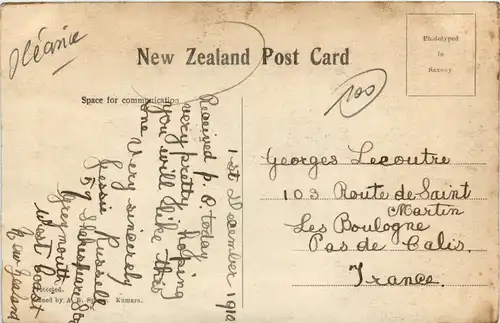 Océanie
New Zealand Post Card
Phototyped
in
Saxony
100
Space for communication
1st December 1910
Received p. c today
very pretty, hoping
you will like this
one
Very sincerely
Jessie Russell
59 Shakespear St
Greymouth
West Coast
New Zealand
Georges Lecoutre
103 Route de Saint
Martin
Les Boulogne
Pas de Calis.
France.
Protected.
Issued by A. B. Kumara.